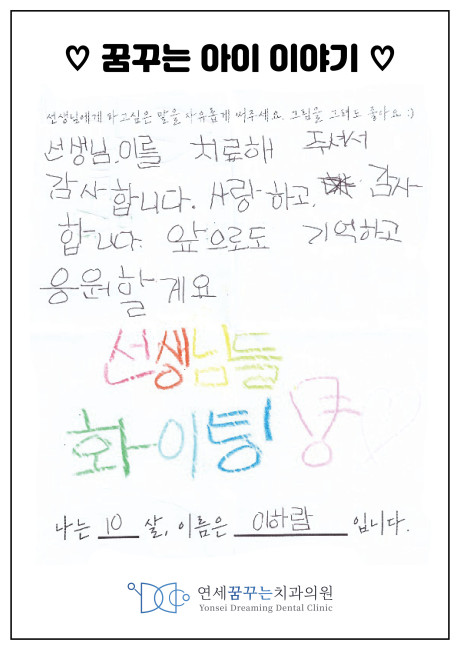 ♡ 꿈꾸는 아이 이야기 ♡
선생님에게 하고싶은 말을 자유롭게 써주세요. 그림을 그려도 좋아요 :)
선생님. 이를 치료해 주셔서
감사합니다. 사랑하고, 감사
합니다. 앞으로도 기억하고
응원할게요
선생님들
화이팅
나는 10 살, 이름은 이하람 입니다.
연세꿈꾸는치과의원
Yonsei Dreaming Dental Clinic